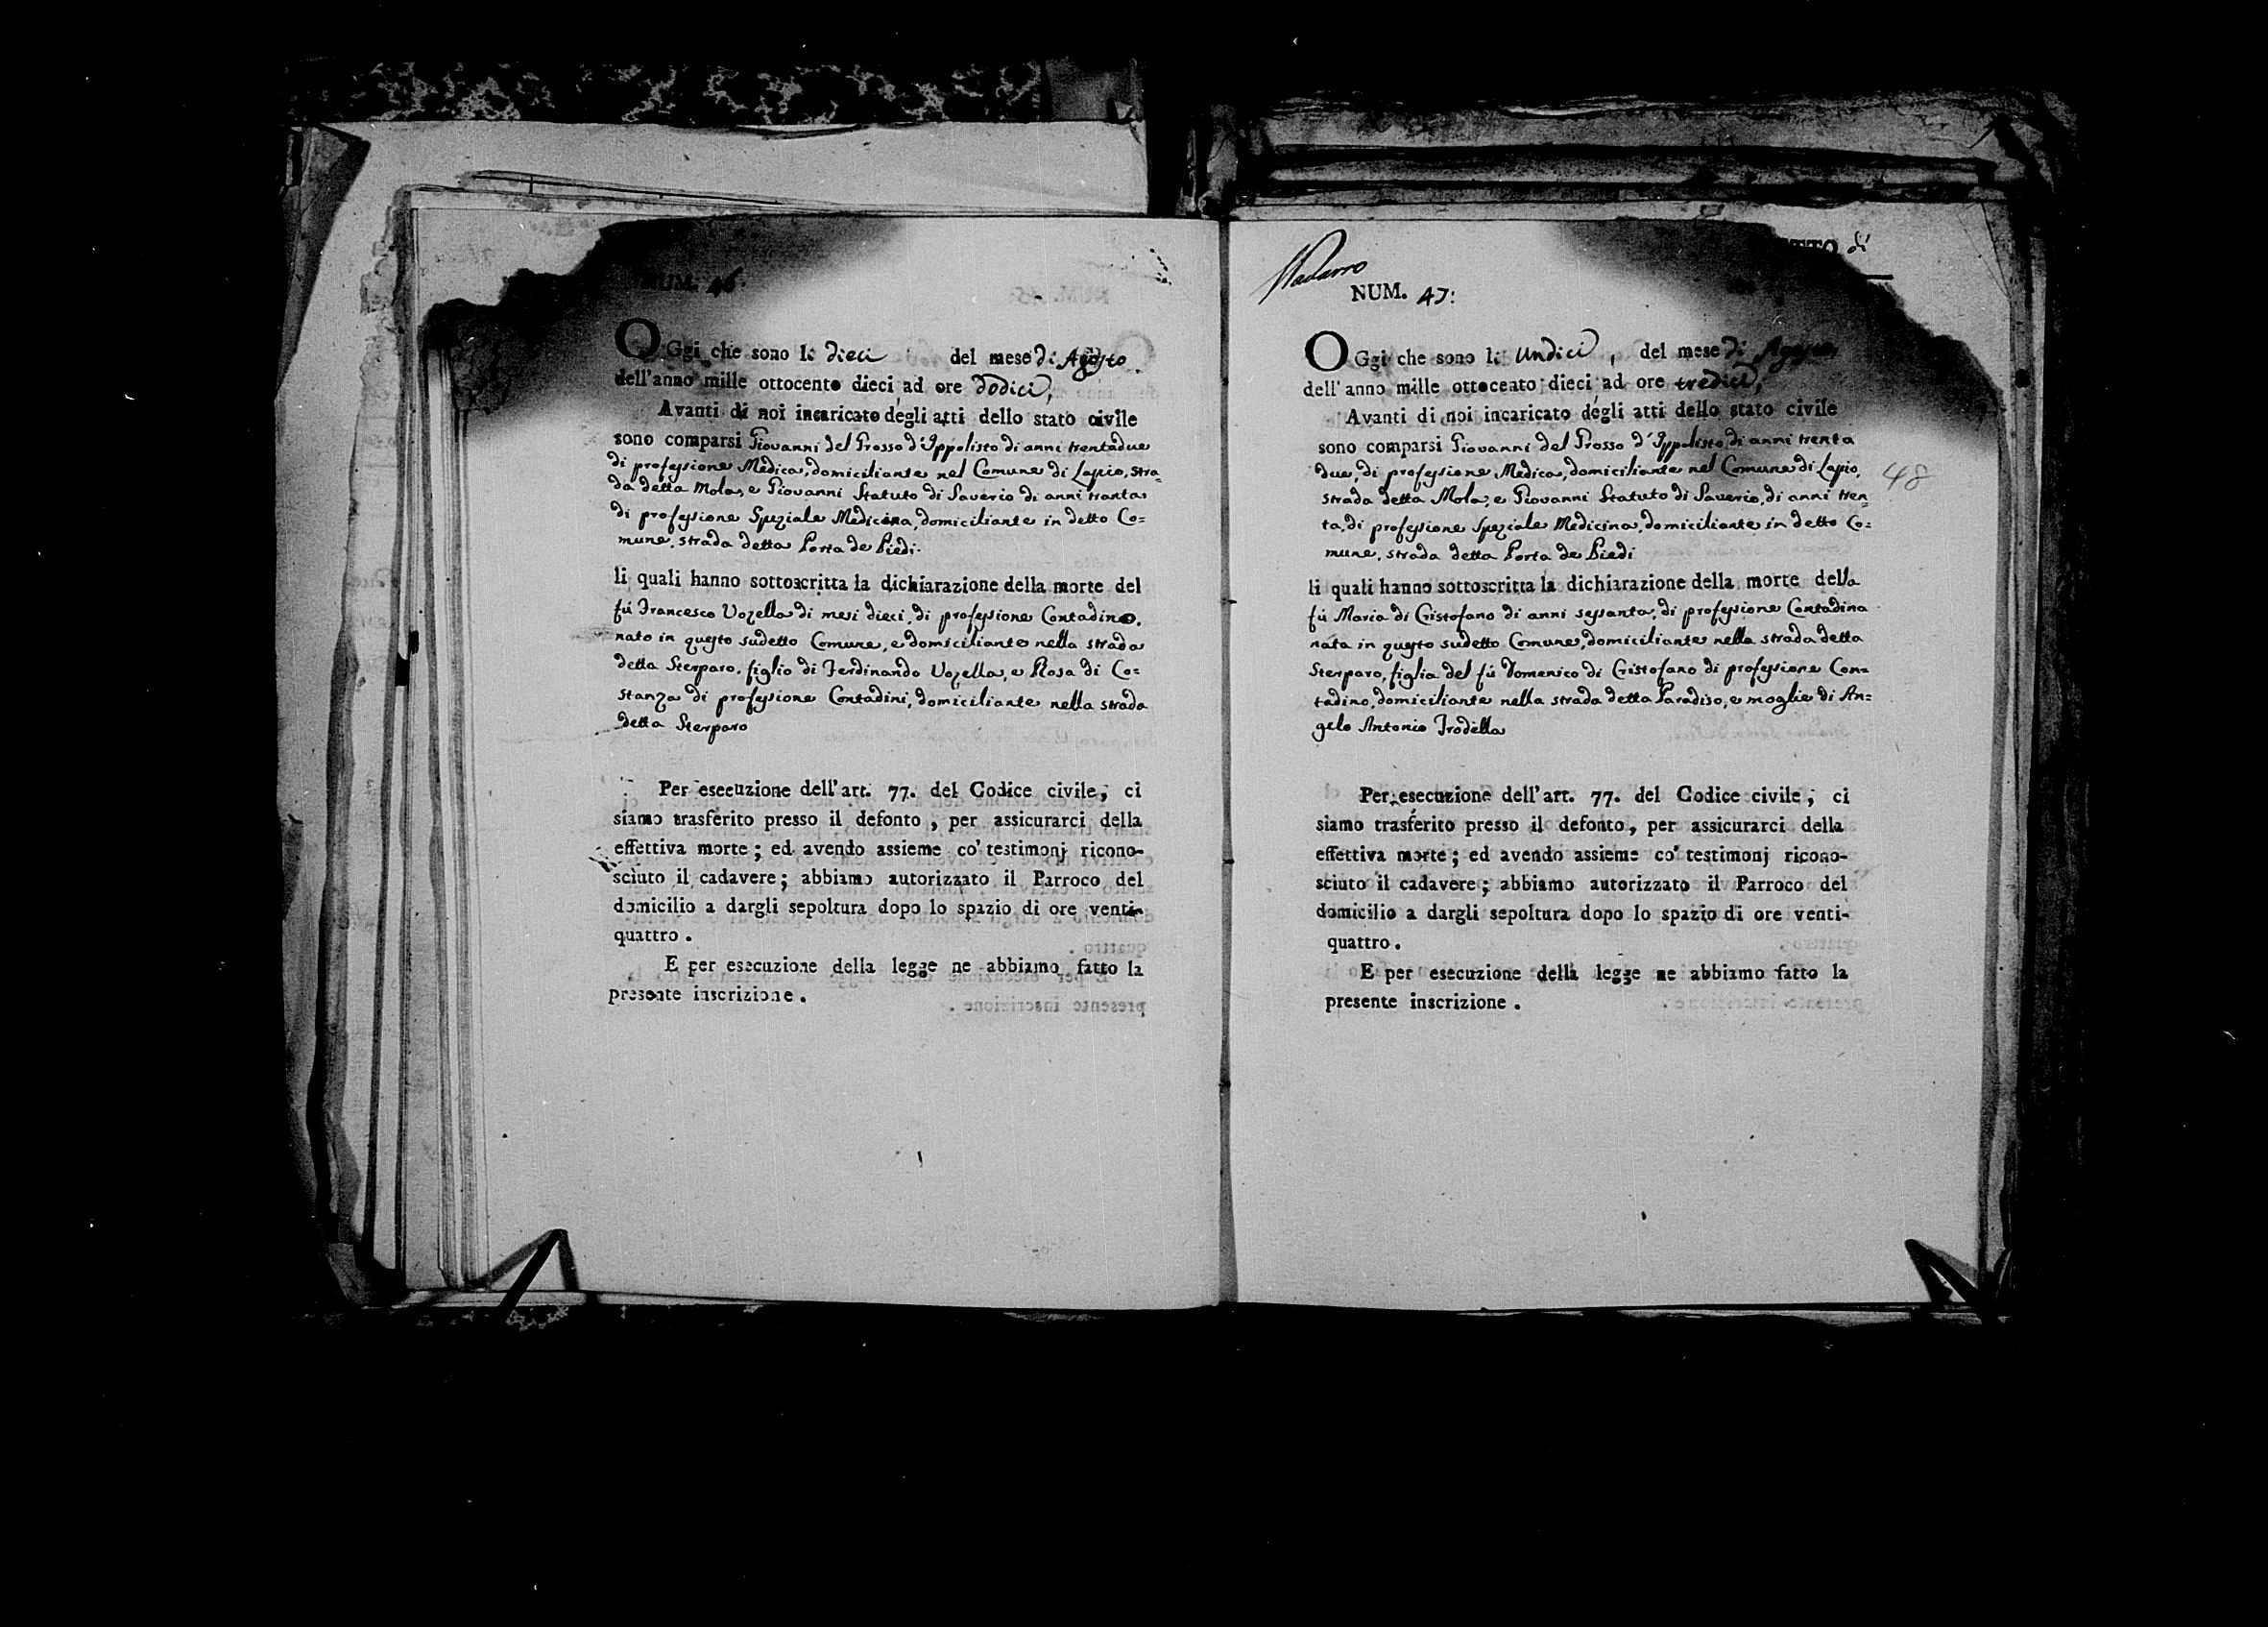 NUM. 46.
OGgi che sono li dieci del mese di Agosto
dell'anno mille ottocento dieci ad ore dodici,
Avanti di noi incaricato degli atti dello stato civile
sono comparsi Giovanni del Grosso d'Ippolisto di anni trentadue
di professione Medica, domiciliante nel Comune di Lapio, stra=
da detta Mola, e Giovanni Statuto di Saverio di anni trenta
di professione Speziale Medicina, domiciliante in detto Co=
mune, strada detta Porta de Piedi.
li quali hanno sottoscritta la dichiarazione della morte del
fù Francesco Vozella di mesi dieci, di professione Contadino,
nato in questo sudetto Comune, e domiciliante nella strada
detta Sterparo, figlio di Ferdinando Vozella, e Rosa di Co=
stanza di professione Contadini, domiciliante nella strada
detta Sterparo
Per esecuzione dell'art. 77. del Codice civile, ci
siamo trasferito presso il defonto, per assicurarci della
effettiva morte; ed avendo assieme co' testimonj ricono-
sciuto il cadavere; abbiamo autorizzato il Parroco del
domicilio a dargli sepoltura dopo lo spazio di ore venti-
quattro.
E per esecuzione della legge ne abbiamo fatto la
presente inscrizione.
di
NUM. 47:
OGgi che sono li Undici, del mese di Agosto,
dell'anno mille ottocento dieci ad ore tredici,
Avanti di noi incaricato degli atti dello stato civile
sono comparsi Giovanni del Grosso d'Ippolisto, di anni trenta
due, di professione Medica, domiciliante nel Comune di Lapio,
48
strada detta Mola, e Giovanni Statuto di Saverio, di anni tren
ta, di professione Speziale Medicina, domiciliante in detto Co=
mune, strada detta Porta de Piedi
li quali hanno sottoscritta la dichiarazione della morte della
fù Maria di Cristofano di anni sessanta, di professione Contadina
nata in questo sudetto Comune, domiciliante nella strada detta
Sterparo, figlia del fù Domenico di Cristofano di professione Con=
tadino, domiciliante nella strada detta Paradiso, e moglie di An=
gelo Antonio Trodella
Per esecuzione dell'art. 77. del Codice civile, ci
siamo trasferito presso il defonto, per assicurarci della
effettiva morte; ed avendo assieme co' testimonj ricono-
sciuto il cadavere; abbiamo autorizzato il Parroco del
domicilio a dargli sepoltura dopo lo spazio di ore venti-
quattro.
E per esecuzione della legge ne abbiamo fatto la
presente inscrizione.